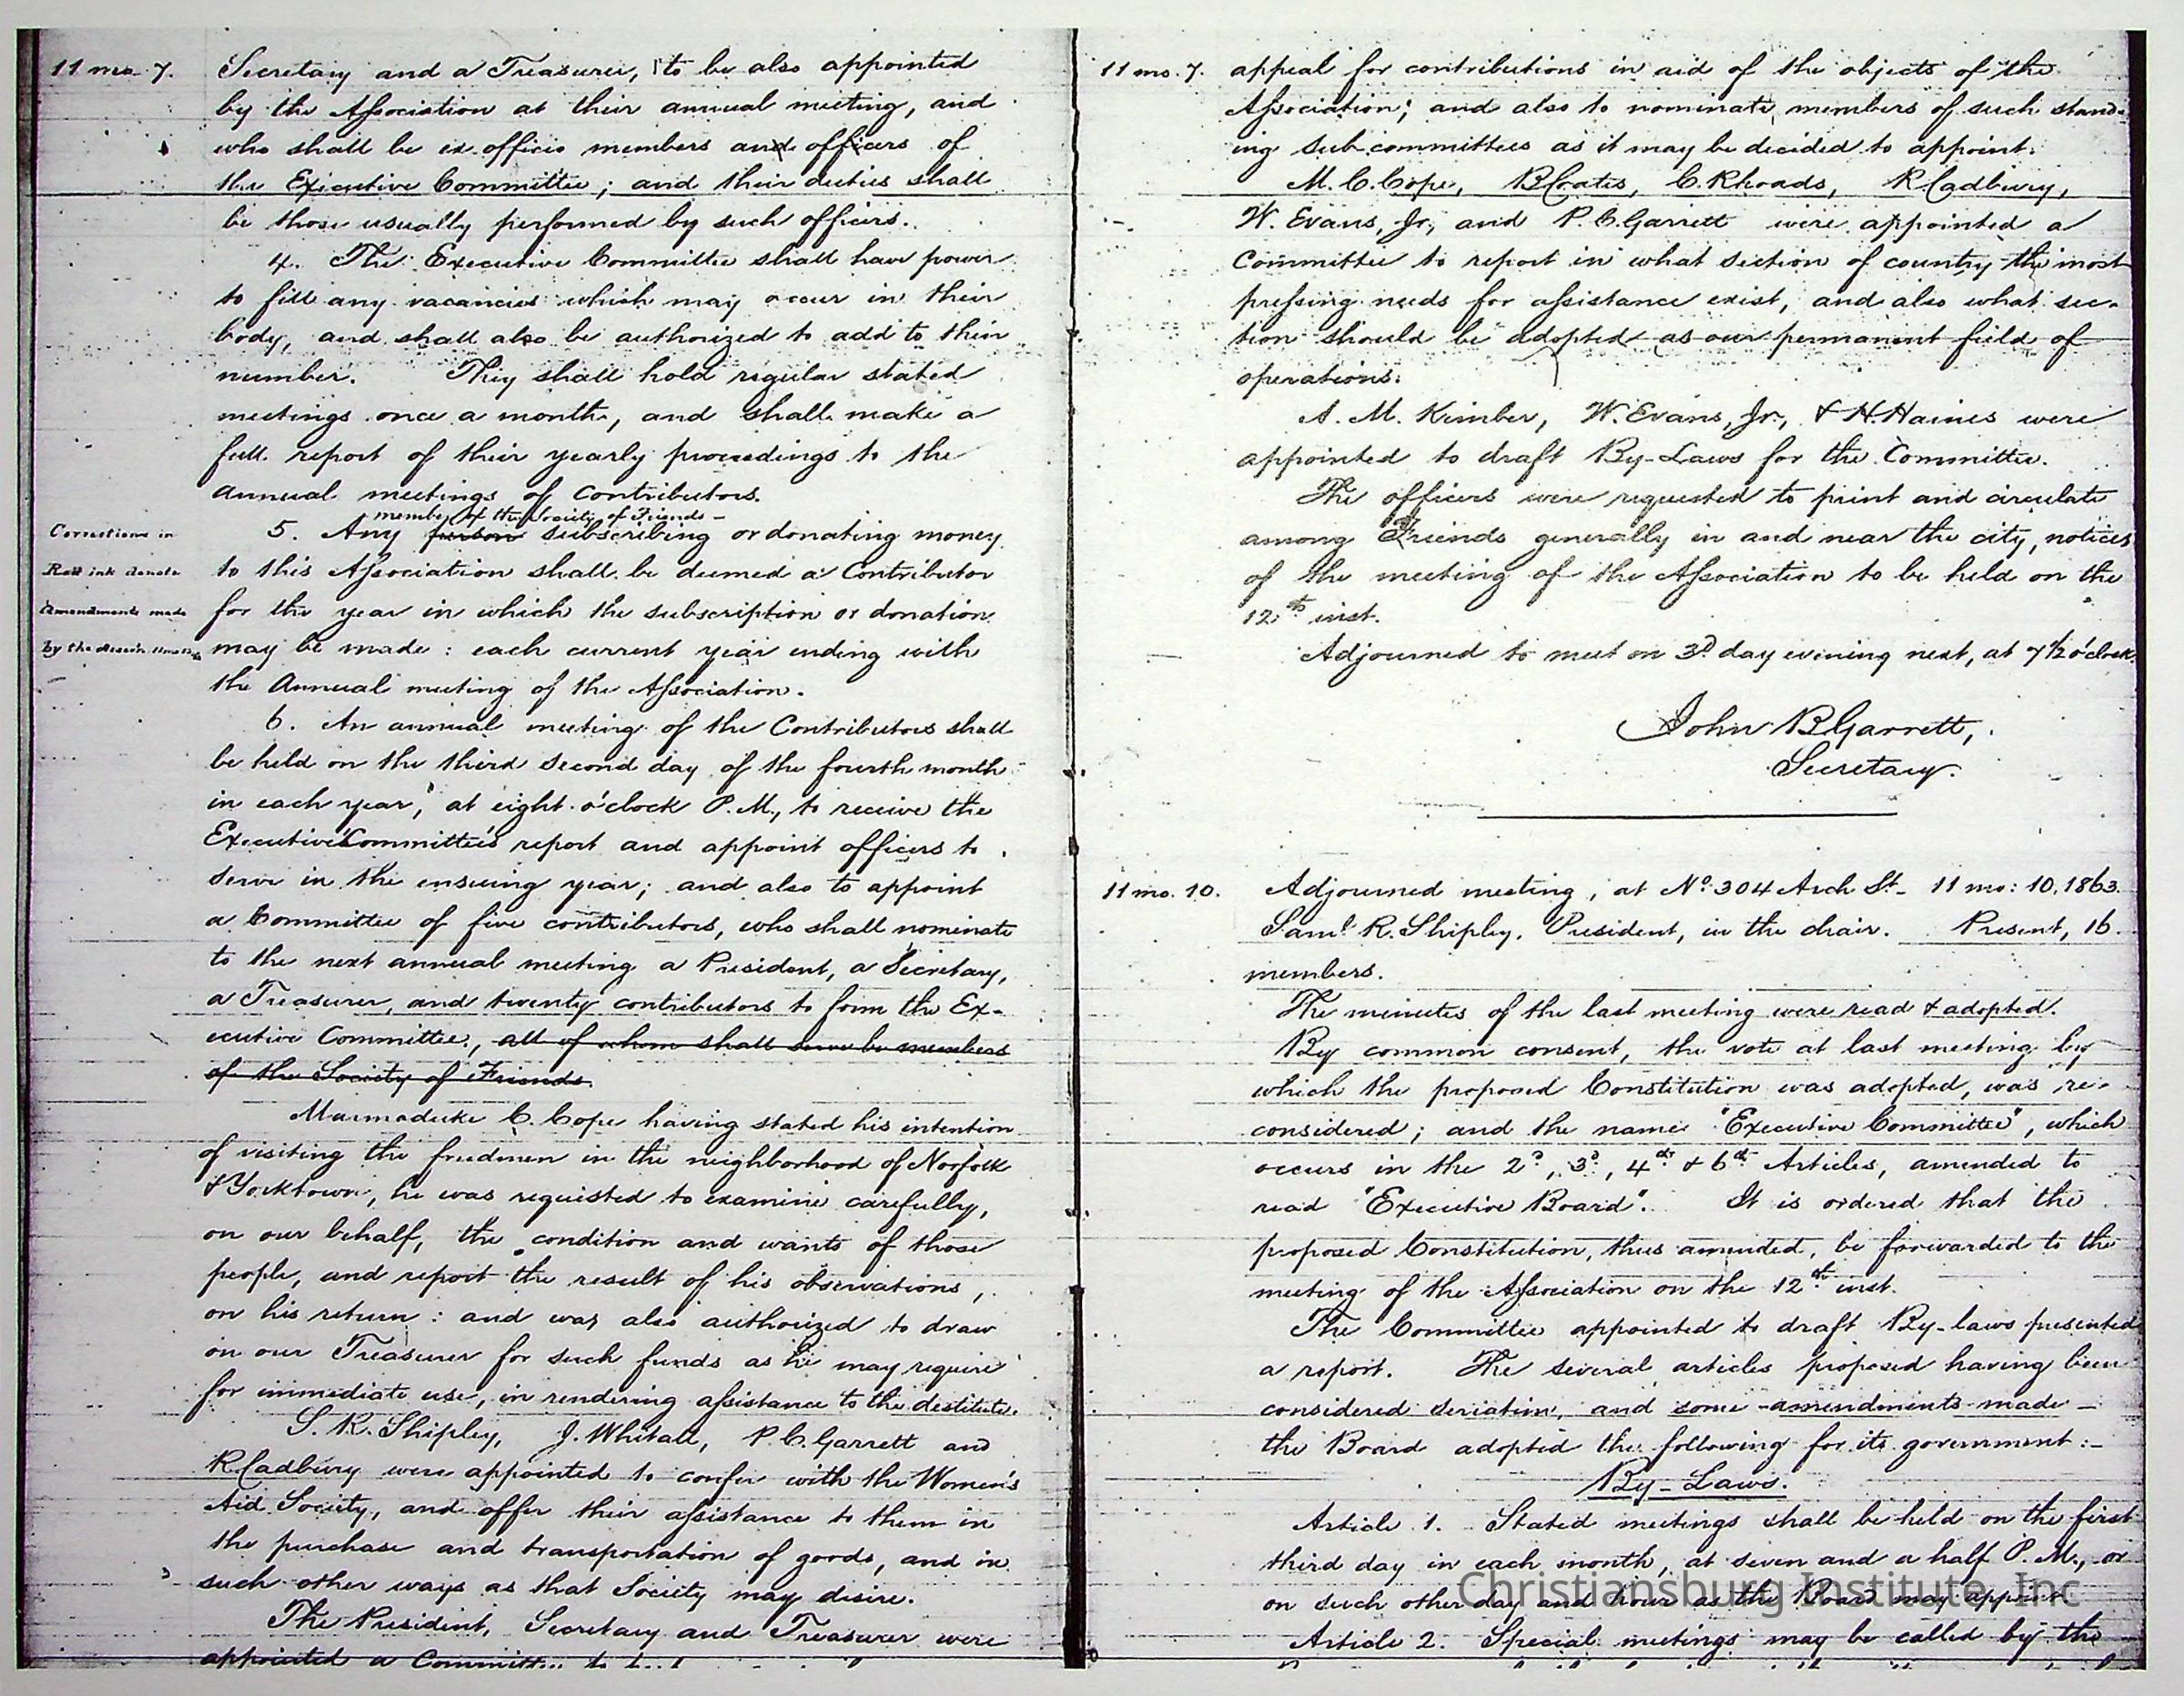 11 mo. 7.
Secretary and a Treasurer, to be also appointed
by the Association at their annual meeting, and
who shall be ex officio members and officers of
the Executive Committee; and their duties shall
be those usually performed by such officers.
4. The Executive Committee shall have power
to fill any vacancies which may occur in their
body, and shall also be authorized to add to their
number. They shall hold regular stated
meetings once a month, and shall make a
full report of their yearly proceedings to the
annual meetings of contributors.
member of the Society of Friends
5. Any person subscribing or donating money
to this Association shall be deemed a Contributor
for the year in which the subscription or donation
may be made: each current year ending with
the Annual meeting of the Association.
Corrections in
Red ink denote
Amendments made
by the
6. An annual meeting of the Contributors shall
be held on the third second day of the fourth month
in each year, at eight o'clock P.M., to receive the
Executive Committee's report and appoint officers to
serve in the ensuing year; and also to appoint
a Committee of five contributors, who shall nominate
to the next annual meeting a President, a Secretary,
a Treasurer, and twenty contributors to form the Ex-
ecutive Committee, all of whom shall be members
of the Society of Friends.
Marmaduke C. Cope having stated his intention
of visiting the freedmen in the neighborhood of Norfolk
& Yorktown, he was requested to examine carefully,
on our behalf, the condition and wants of those
people, and report the result of his observations,
on his return: and was also authorized to draw
on our Treasurer for such funds as he may require
for immediate use, in rendering assistance to the destitute.
S. R. Shipley, J. Whitall, P. C. Garrett and
R Cadbury were appointed to confer with the Women's
Aid Society, and offer their assistance to them in
the purchase and transportation of goods, and in
such other ways as that Society may desire.
The President, Secretary and Treasurer were
appointed a Committee to
11 mo. 7.
appeal for contributions in aid of the objects of the
Association; and also to nominate members of such stand-
ing sub committees as it may be decided to appoint.
M. C. Cope, B Coates, C. Rhoads, R Cadbury,
W. Evans, Jr., and P. C. Garrett were appointed a
Committee to report in what section of country the most
pressing needs for assistance exist, and also what sec-
tion should be adopted as our permanent field of
operations.
A. M. Kimber, W. Evans, Jr., & H. Haines were
appointed to draft By-Laws for the Committee.
The officers were requested to print and circulate
among Friends generally in and near the city, notices
of the meeting of the Association to be held on the
12th inst.
Adjourned to meet on 3d day evening next, at 7 1/2 o'clock.
John B Garrett,
Secretary.
11 mo. 10.
Adjourned meeting, at No. 304 Arch St. 11 mo: 10. 1863.
Saml. R. Shipley, President, in the chair. Present, 16.
members.
The minutes of the last meeting were read & adopted.
By common consent, the vote at last meeting by
which the proposed Constitution was adopted, was re-
considered; and the name "Executive Committee", which
occurs in the 2d, 3d, 4th & 6th Articles, amended to
read "Executive Board". It is ordered that the
proposed Constitution, thus amended, be forwarded to the
meeting of the Association on the 12th inst.
The Committee appointed to draft By-laws presented
a report. The several articles proposed having been
considered seriatim, and some amendments made -
the Board adopted the following for its government:-
By-Laws.
Article 1. Stated meetings shall be held on the first
third day in each month, at seven and a half P.M., or
on such other day and hour as the Board may appoint
Article 2. Special meetings may be called by the
Christiansburg Institute, Inc